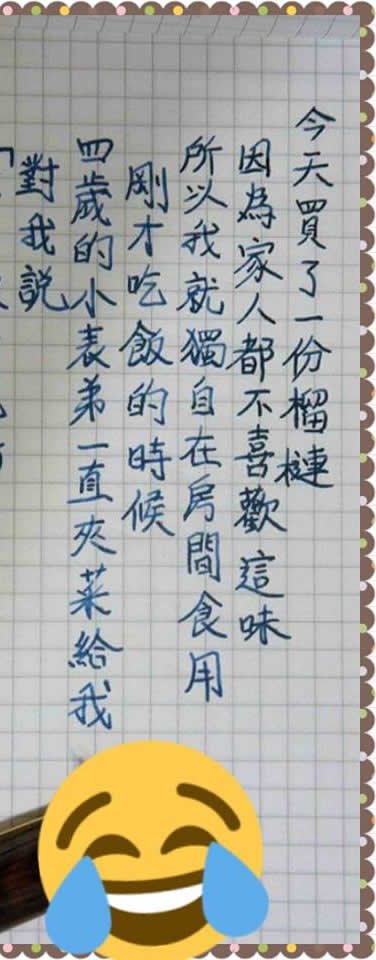 今天買了一份榴槤
因為家人都不喜歡這味
所以我就獨自在房間食用
剛才吃飯的時候
四歲的小表弟一直夾菜給我
對我說